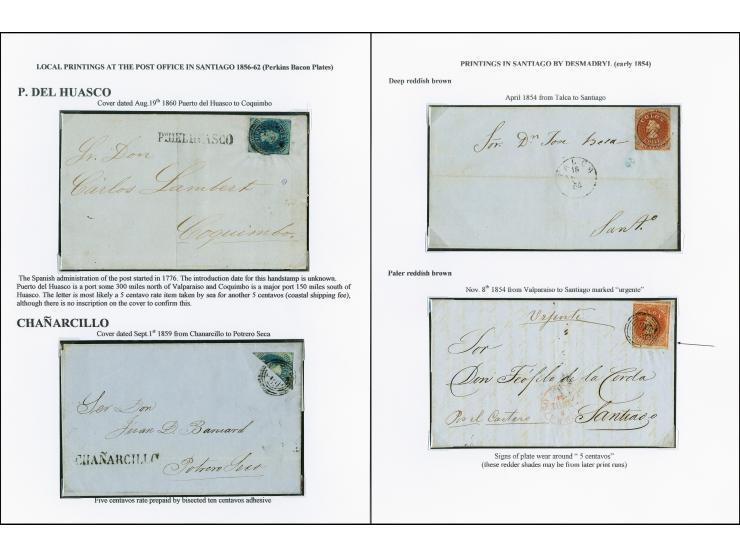 LOCAL PRINTINGS AT THE POST OFFICE IN SANTIAGO 1856-62 (Perkins Bacon Plates)
P. DEL HUASCO
Cover dated Aug.19th 1860 Puerto del Huasco to Coquimbo
PTO DEL HUASCO
Sr. Don
Carlos Lambert
Coquimbo
The Spanish administration of the post started in 1776. The introduction date for this handstamp is unknown.
Puerto del Huasco is a port some 300 miles north of Valparaiso and Coquimbo is a major port 150 miles south of
Huasco. The letter is most likely a 5 centavo rate item taken by sea for another 5 centavos (coastal shipping fee),
although there is no inscription on the cover to confirm this.
CHAÑARCILLO
Cover dated Sept.1st 1859 from Chanarcillo to Potrero Seca
Sor Don
Juan D. Barnard
CHAÑARCILLO
Potrero Seco
Five centavos rate prepaid by bisected ten centavos adhesive
PRINTINGS IN SANTIAGO BY DESMADRYL (early 1854)
Deep reddish brown
April 1854 from Talca to Santiago
COLON
Sor. Dn Jose
TALCA
Santo
Paler reddish brown
Nov. 8th 1854 from Valparaiso to Santiago marked “urgente”
Urjente
COLON
Sor
Don Teófilo de la Cerda
Por el Cartero Santiago
Signs of plate wear around “ 5 centavos”
(these redder shades may be from later print runs)